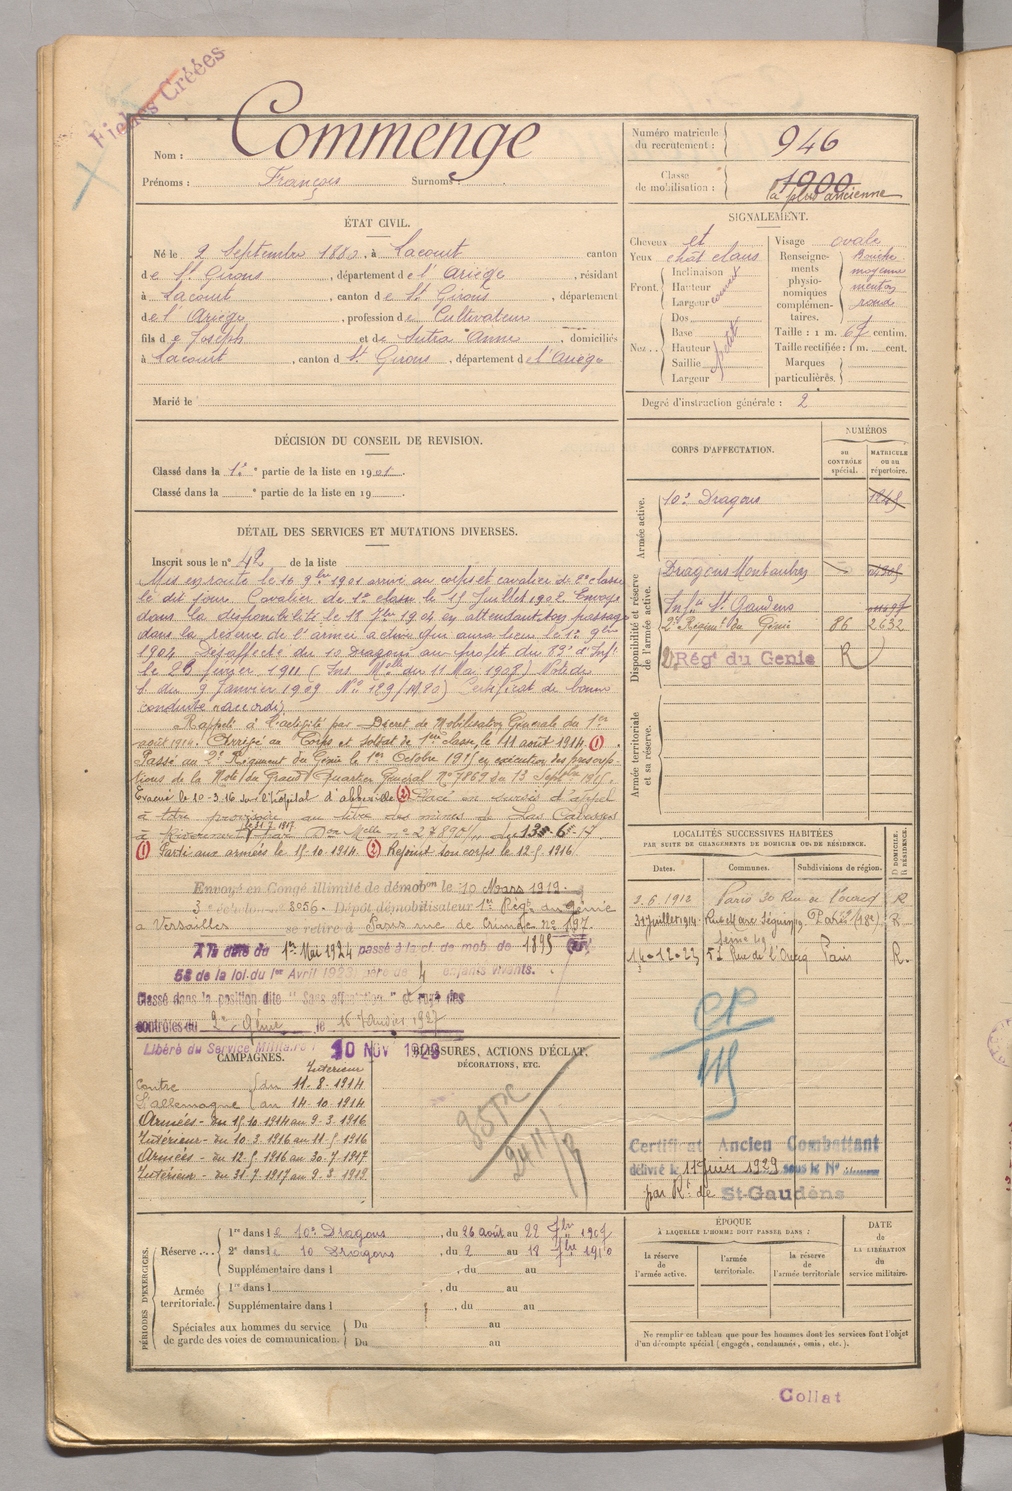 Fiches Créées
Nom : Commenge
Prénoms : François Surnoms :
Numéro matricule du recrutement : 946
Classe de mobilisation : 1900
la plus ancienne
ÉTAT CIVIL.
Né le 2 Septembre 1880, à Lacourt canton
de St Girons, département de l'Ariège, résidant
à Lacourt, canton de St Girons, département
de l'Ariège, profession de Cultivateur
fils de Joseph et de Sutra Anne, domiciliés
à Lacourt, canton d St Girons, département de l'Ariège
Marié le
SIGNALEMENT.
Cheveux et
Yeux chât clairs
Front. Inclinaison
Hauteur
Largeur
Nez.. Dos
Base
Hauteur
Saillie
Largeur
Visage ovale
Renseigne-
ments
physio-
nomiques
complémen-
taires.
bouche
moyenne
menton
rond
Taille : 1 m. 67 centim.
Taille rectifiée : 1 m. cent.
Marques
particulières.
Degré d'instruction générale : 2
DÉCISION DU CONSEIL DE REVISION.
Classé dans la 1re partie de la liste en 1901.
Classé dans la e partie de la liste en 19
CORPS D'AFFECTATION.
NUMÉROS
au
CONTRÔLE
spécial.
MATRICULE
ou au
répertoire.
Armée active.
10e Dragons
Disponibilité et réserve
de l'armée active.
Dragons Montauban
Infie St Gaudens
2e Régiment du Génie 86 2632
2 Rég.t du Genie R
Armée territoriale
et sa réserve.
DÉTAIL DES SERVICES ET MUTATIONS DIVERSES.
Inscrit sous le n° 42 de la liste
Mis en route le 16 9bre 1901 arrivé au corps et cavalier de 2e classe
le dit jour. Cavalier de 1e classe le 15 Juillet 1902. Envoyé
dans la disponibilité le 18 7bre 1904 en attendant son passage
dans la réserve de l'armée active qui aura lieu le 1er 9bre
1904. Désaffecté du 10 Dragons au profit du 83e d'Infie
le 28 février 1911 (Ins. Mlle du 11 Mai 1908) Note du
du 9 Janvier 1909 No 129 Certificat de bonne
conduite "accordé"
Rappelé à l'activité par Décret de Mobilisation Générale du 1er
août 1914. Arrivé au Corps et soldat de 1ère classe, le 11 août 1914. (1)
Passé au 2e Régiment du Génie le 1er Octobre 1915 en exécution des prescrip-
tions de la Note du Grand Quartier Général No 7869 du 13 Septbre 1915
Evacué le 10-3-16 sur l'hôpital d'abbeville (2) Placé en sursis d'appel
à titre provisoire au titre des mines de Las Cabesses
à Rivèrenert le 31.7.1917 par Don Melle no 27890 du 13-6-17
(1) Parti aux armées le 15-10-1914. (2) Rejoint son corps le 12-5-1916
Envoyé en Congé illimité de démobon le 10 Mars 1919.
3e échelon no 8056. Dépôt démobilisateur 1er Régt du génie
à Versailles se retire à Paris rue de Crimée no 197.
A la date du 1er Mai 1924 passé à la cl. de mob. de 1895 (Art.
58 de la loi du 1er Avril 1923 père de 4 enfants vivants.
Classé dans la position dite "Sans affectation" et rayé des
contrôles du 2e Génie le 16 Janvier 1927
Libéré du Service Militaire le 10 NOV 1929
LOCALITÉS SUCCESSIVES HABITÉES
PAR SUITE DE CHANGEMENTS DE DOMICILE OU DE RÉSIDENCE.
Dates. Communes. Subdivisions de région. D. DOMICILE. R. RÉSIDENCE.
2.6.1912 Paris 30 Rue de l'Ourcq R
31 Juillet 1914 Rue Marc Séguin 19 Paris (18e) R
14-12-23 51 Rue de l'Ourcq Paris R.
CAMPAGNES.
Intérieur
Contre du 11-8-1914
l'allemagne au 14-10-1914
Armées - du 15-10-1914 au 9-3-1916
Intérieur - du 10-3-1916 au 11-5-1916
Armées - du 12-5-1916 au 30-7-1917
Intérieur - du 31-7-1917 au 9-3-1919
BLESSURES, ACTIONS D'ÉCLAT,
DÉCORATIONS, ETC.
Certificat Ancien Combattant
délivré le 11 Juin 1929 sous le No
par Rt de St-Gaudens
PÉRIODES D'EXERCICES.
Réserve .... 1re dans le 10e Dragons, du 26 août au 22 7bre 1907
2e dans le 10 Dragons, du 2 au 18 7bre 1910
Supplémentaire dans l , du au
Armée
territoriale. 1re dans l , du au
Supplémentaire dans l , du au
Spéciales aux hommes du service
de garde des voies de communication. Du au
Du au
ÉPOQUE
À LAQUELLE L'HOMME DOIT PASSER DANS :
la réserve
de
l'armée active.
l'armée
territoriale.
la réserve
de
l'armée territoriale
DATE
de
LA LIBÉRATION
du
service militaire.
Ne remplir ce tableau que pour les hommes dont les services font l'objet
d'un décompte spécial (engagés, condamnés, omis, etc.).
Collat